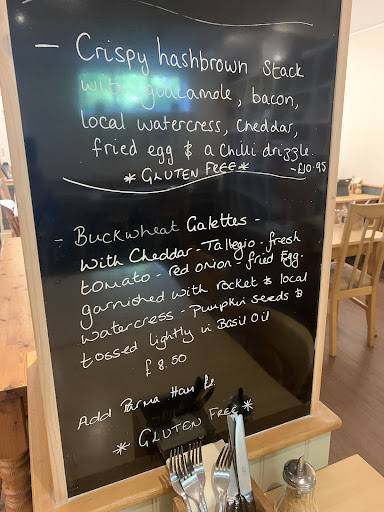 - Crispy hashbrown Stack
with guacamole, bacon,
local watercress, Cheddar,
fried egg & a chilli drizzle
* GLUTEN FREE * -£10.95
- Buckwheat Galettes -
With Cheddar - Tallegio - fresh
tomato - red onion - fried Egg.
garnished with rocket & local
watercress - Pumpkin seeds &
tossed lightly in Basil Oil
£8.50
Add Parma Ham
* GLUTEN FREE *